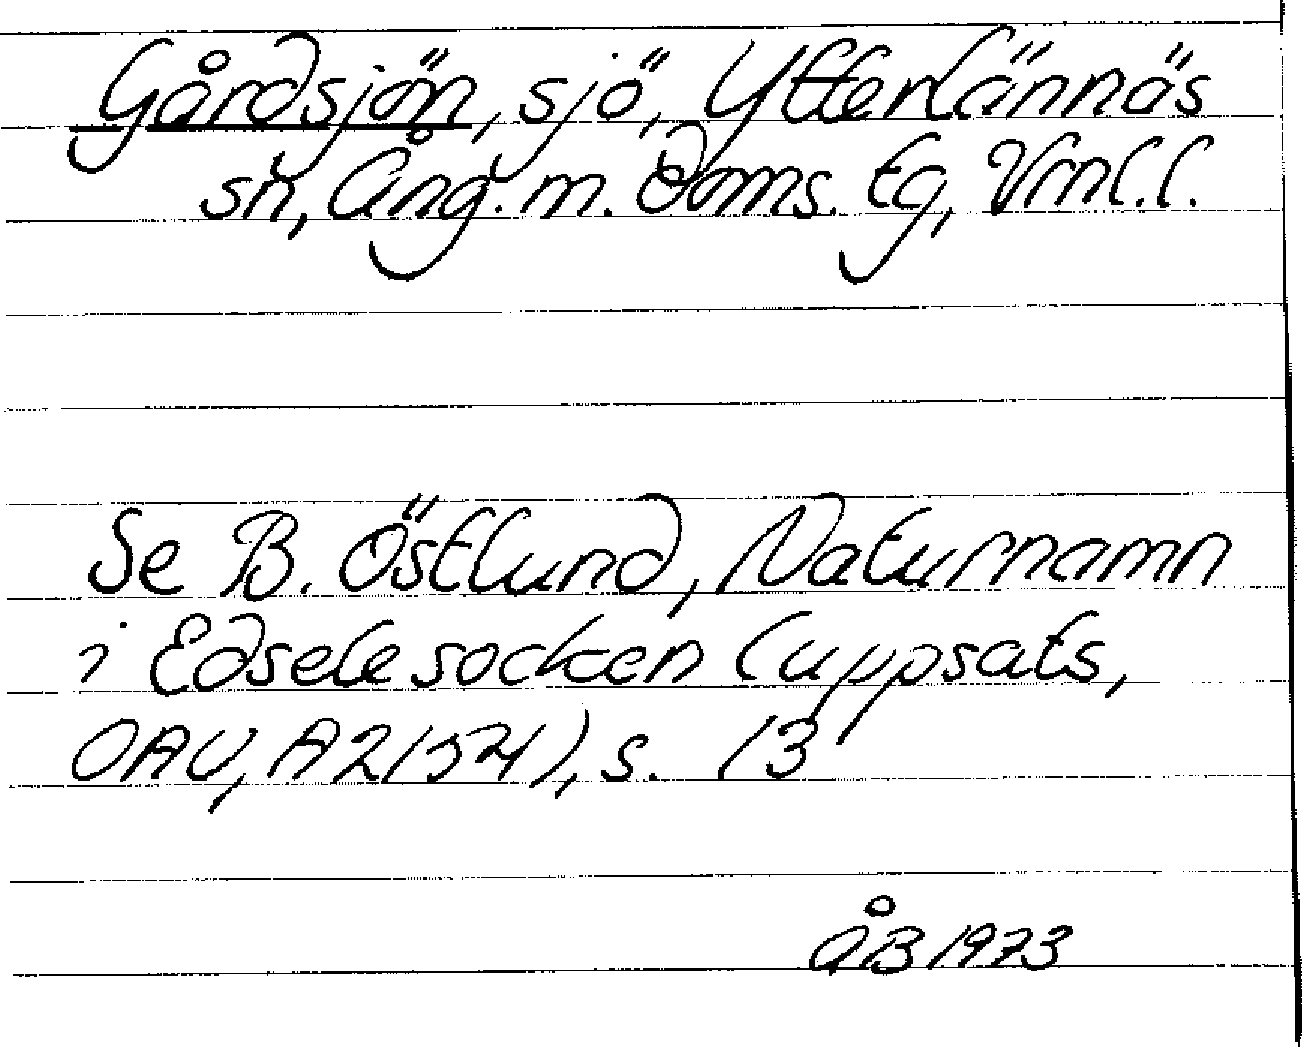 Gårdsjön, sjö, Ytterlännäs
sn, Ång. m. doms. tg, Vrnl.l.
Se B. Östlund, Naturnamn
i Edsele socken (uppsats,
OAU, A2154), s. 13
ÅB 1973